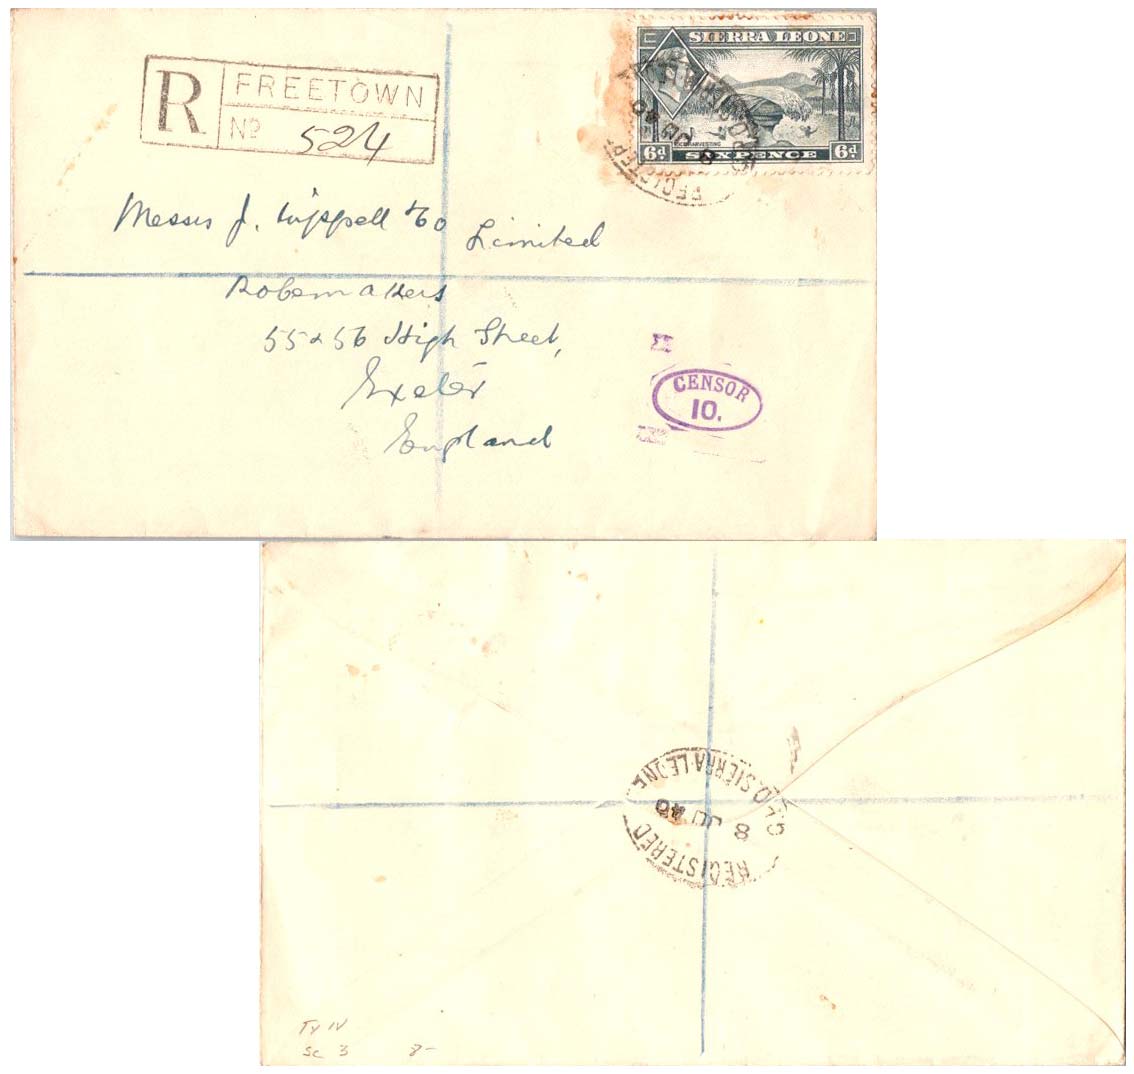 R FREETOWN
Nº 524
SIERRA LEONE
RICE HARVESTING
6d SIXPENCE 6d
8 JU 40
Messrs J. Wippell & Co Limited
Robemakers
55 & 56 High Street,
Exeter
England
CENSOR
10.
G.P.O. SIERRA LEONE
8 JU 40
REGISTERED
Ty IV
Sc 3 8-